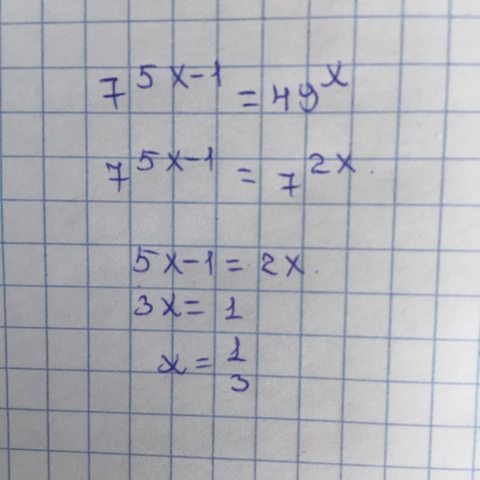 7^{5x-1} = 49^{x}
7^{5x-1} = 7^{2x}.
5x-1 = 2x.
3x = 1
x = \frac{1}{3}